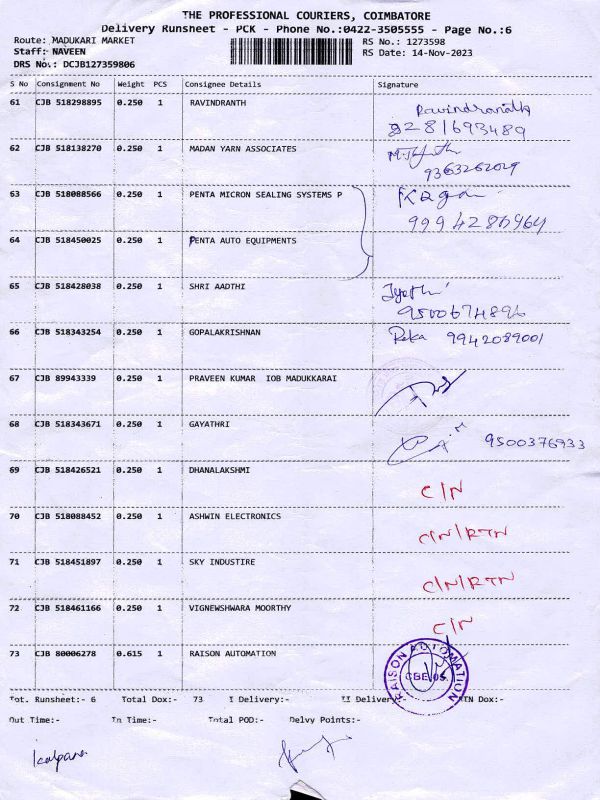 THE PROFESSIONAL COURIERS, COIMBATORE
Delivery Runsheet - PCK - Phone No.:0422-3505555 - Page No.:6
Route: MADUKARI MARKET RS No.: 1273598
Staff: NAVEEN RS Date: 14-Nov-2023
DRS No.: DCJB127359806
S No Consignment No Weight PCS Consignee Details Signature
61 CJB 518298895 0.250 1 RAVINDRANTH Ravindranath
8281693489
62 CJB 518138270 0.250 1 MADAN YARN ASSOCIATES
9363262029
63 CJB 518088566 0.250 1 PENTA MICRON SEALING SYSTEMS P
9994286964
64 CJB 518450025 0.250 1 PENTA AUTO EQUIPMENTS
65 CJB 518428038 0.250 1 SHRI AADTHI Jyothi
9500674896
66 CJB 518343254 0.250 1 GOPALAKRISHNAN Reka 9942089001
67 CJB 89943339 0.250 1 PRAVEEN KUMAR IOB MADUKKARAI
68 CJB 518343671 0.250 1 GAYATHRI 9500376933
69 CJB 518426521 0.250 1 DHANALAKSHMI C/N
70 CJB 518088452 0.250 1 ASHWIN ELECTRONICS C/N/RTN
71 CJB 518451897 0.250 1 SKY INDUSTIRE C/N/RTN
72 CJB 518461166 0.250 1 VIGNEWSHWARA MOORTHY C/N
73 CJB 80006278 0.615 1 RAISON AUTOMATION RAISON AUTOMATION
CBE-05.
Tot. Runsheet:- 6 Total Dox:- 73 I Delivery:- II Delivery:- RTN Dox:-
Out Time:- In Time:- Total POD:- Delvy Points:-
kalpana